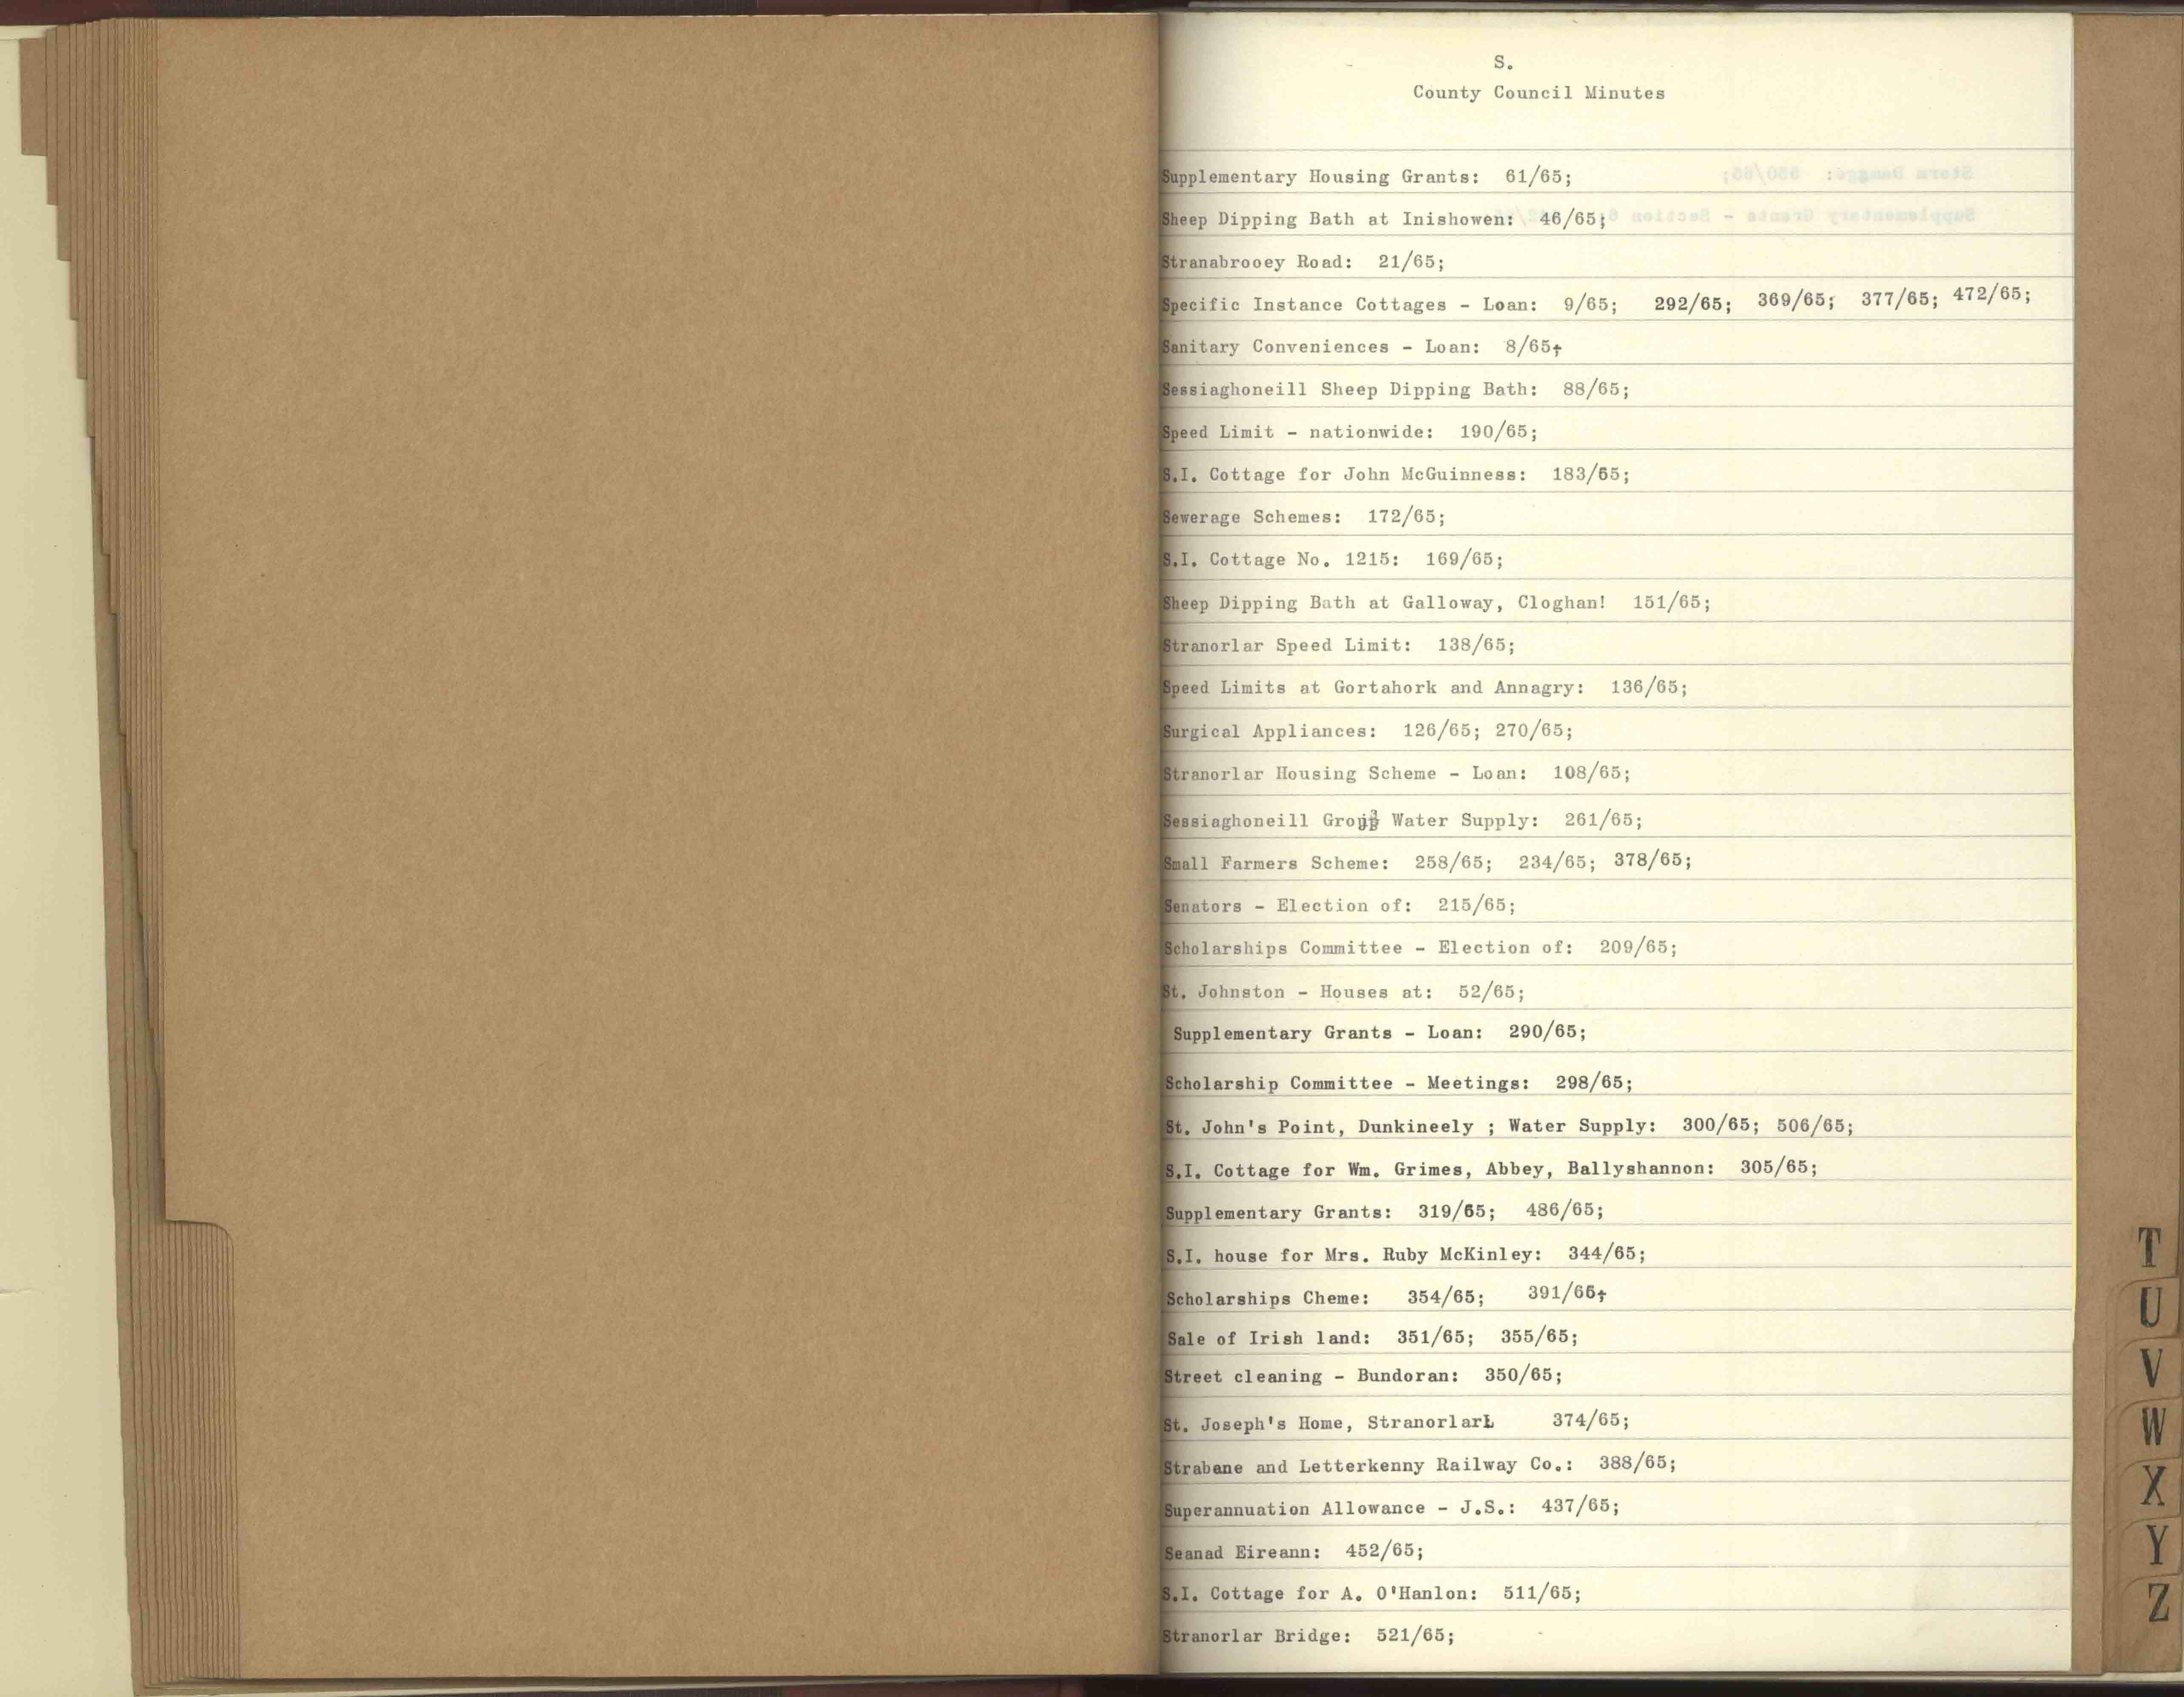 S.
County Council Minutes
Supplementary Housing Grants: 61/65;
Sheep Dipping Bath at Inishowen: 46/65;
Stranabrooey Road: 21/65;
Specific Instance Cottages - Loan: 9/65; 292/65; 369/65; 377/65; 472/65;
Sanitary Conveniences - Loan: 8/65;
Sessiaghoneill Sheep Dipping Bath: 88/65;
Speed Limit - nationwide: 190/65;
S.I. Cottage for John McGuinness: 183/65;
Sewerage Schemes: 172/65;
S.I. Cottage No. 1215: 169/65;
Sheep Dipping Bath at Galloway, Cloghan! 151/65;
Stranorlar Speed Limit: 138/65;
Speed Limits at Gortahork and Annagry: 136/65;
Surgical Appliances: 126/65; 270/65;
Stranorlar Housing Scheme - Loan: 108/65;
Sessiaghoneill Group Water Supply: 261/65;
Small Farmers Scheme: 258/65; 234/65; 378/65;
Senators - Election of: 215/65;
Scholarships Committee - Election of: 209/65;
St. Johnston - Houses at: 52/65;
Supplementary Grants - Loan: 290/65;
Scholarship Committee - Meetings: 298/65;
St. John's Point, Dunkineely ; Water Supply: 300/65; 506/65;
S.I. Cottage for Wm. Grimes, Abbey, Ballyshannon: 305/65;
Supplementary Grants: 319/65; 486/65;
S.I. house for Mrs. Ruby McKinley: 344/65;
Scholarships Cheme: 354/65; 391/65;
Sale of Irish land: 351/65; 355/65;
Street cleaning - Bundoran: 350/65;
St. Joseph's Home, Stranorlar: 374/65;
Strabane and Letterkenny Railway Co.: 388/65;
Superannuation Allowance - J.S.: 437/65;
Seanad Eireann: 452/65;
S.I. Cottage for A. O'Hanlon: 511/65;
Stranorlar Bridge: 521/65;
T
U
V
W
X
Y
Z